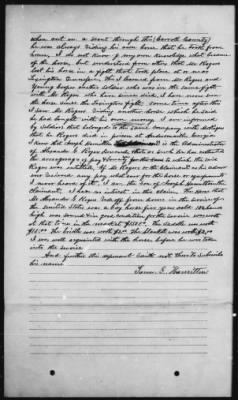 when out on a scout through this (Carroll County)
he was always riding his own horse that he took from
home, I do not know of my own knowledge what became
of the horse, but understood from others that Mr Rogers
lost his horse in a fight that took place at or near
Lexington Missouri. This I learned from Mr Rogers and
Young Cooper another soldier who was in the same fight
with Mr Rogers who have since died, I have never seen
the horse since the Lexington fight, some time after this
I saw Mr Rogers riding another horse which he said
he had bought with his own money. I am informed
by soldiers that belonged to the same company with Mr Rogers
that he Rogers died in prison at Andersonville Georgia
I know that Joseph Hamilton is the Administrator
of Alexander E Rogers deceased, that
the arrearages of pay & bounty for the time which the said
Rogers was entitled, if Mr Rogers or the claimant as his Admr
ever received any pay what ever for the horse or equipments
I never heard of it. I am the son of Joseph Hamilton the
Claimant, I have no interest in the claim. The horse that
Mr Alexander E Rogers rode off from home in the service of
the United States was a bay horse five years old 15½ hands
high was sound & in good condition for the service was worth
at that time in the market $150.00. The saddle was worth
$16.00 The bridle was worth $2.00 The blanket was worth $2.00
I am well acquainted with the horse before he was taken
into the service
And further this deponent saith not then he subscribes
his name
Hamilton